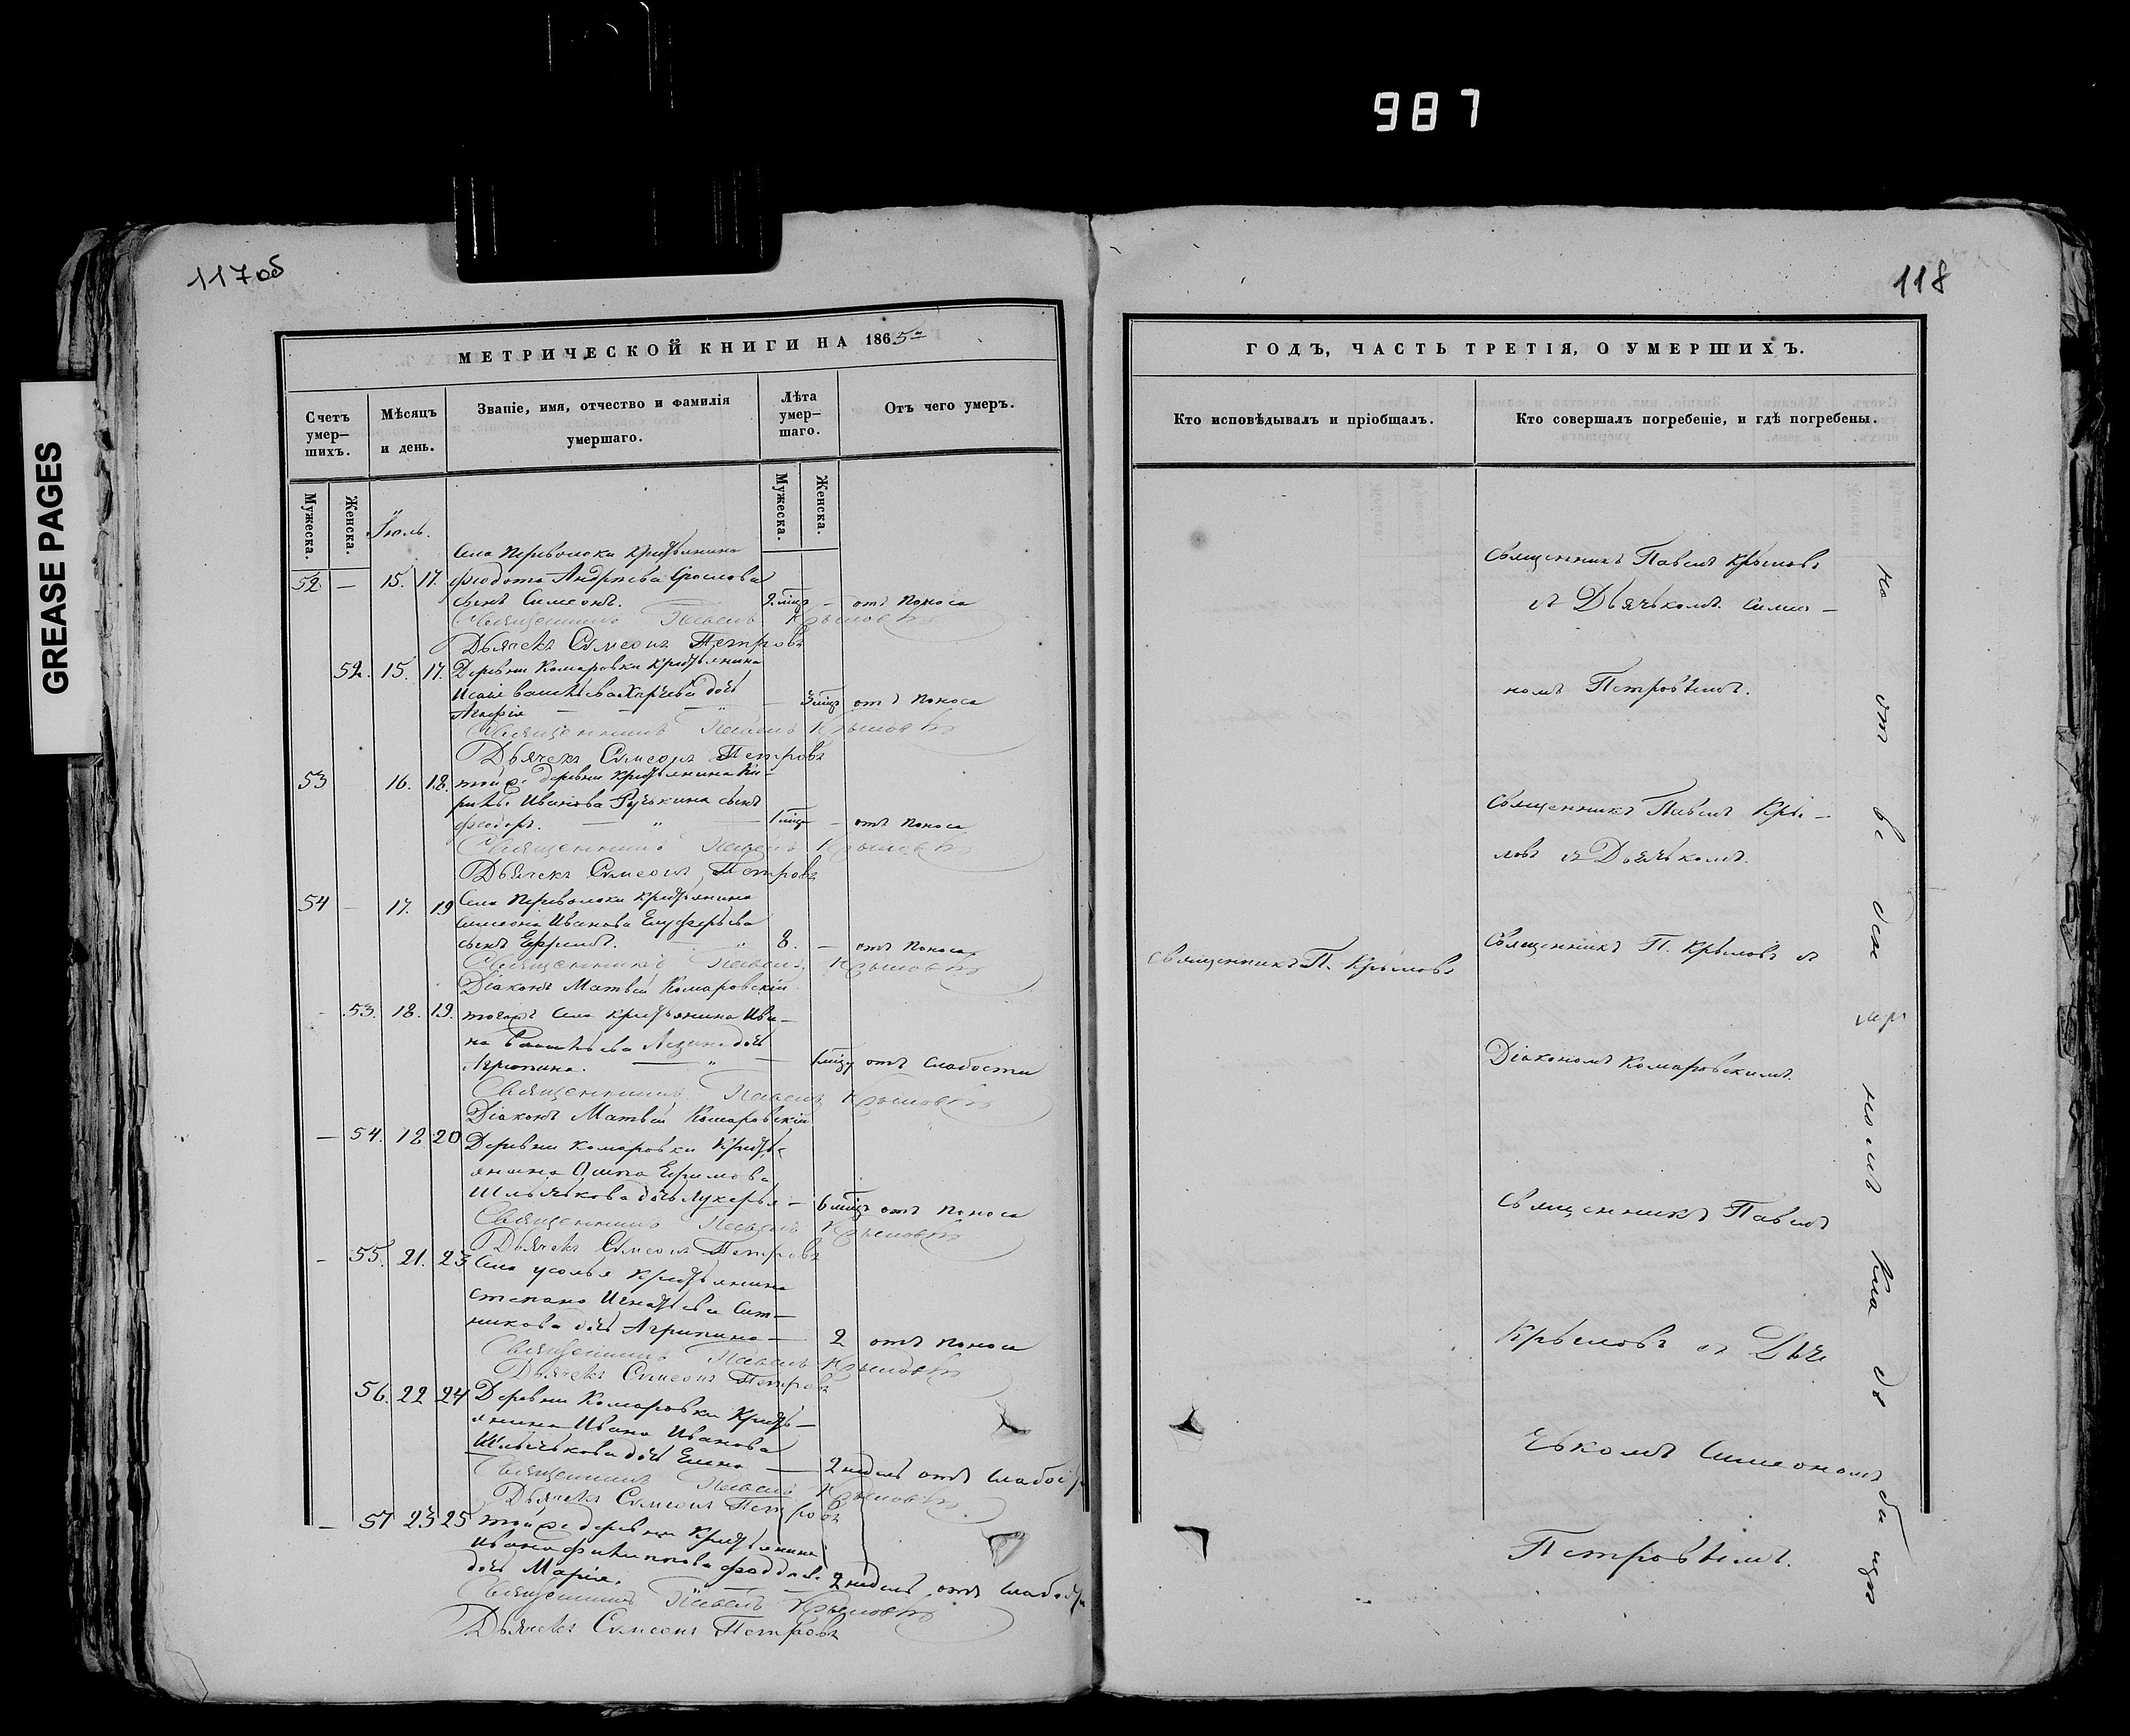 987
GREASE PAGES
117 об
118
МЕТРИЧЕСКОЙ КНИГИ НА 1865й
Счетъ умер–шихъ.
Мѣсяцъ и день.
Званіе, имя, отчество и фамилія умершаго.
Лѣта умер–шаго.
Отъ чего умеръ.
Мужеска.
Женска.
Мужеска.
Женска.
Іюль.
Села Переволоки крестьянина
52 — 15. 17. Феодота Андреева
сынъ Симеонъ. мцъ — отъ поноса
Священникъ Павелъ Крыловъ
Дьячекъ Симеонъ Петровъ
52. 15. 17. Деревни Комаровки крестьянина
дочь
Агафія — 3 мцъ отъ поноса
Священникъ Павелъ Крыловъ
Дьячекъ Симеонъ Петровъ
53 16. 18. той же деревни крестьянина Ки–
Иванова сынъ
Феодоръ. — " — 1 мцъ — отъ поноса
Священникъ Павелъ Крыловъ
Дьячекъ Симеонъ Петровъ
54 — 17. 19 Села Переволоки крестьянина
Симеона Иванова Елуферьева
сынъ Ефремъ. " 8. — отъ поноса
Священникъ Павелъ Крыловъ
Діаконъ Матвей Комаровскій
- 53. 18. 19. тогожъ села крестьянина Ива–
на дочь
Агрипина. — " — 1 мцъ отъ слабости
Священникъ Павелъ Крыловъ
Діаконъ Матвей Комаровскій
— 54. 18 20 Деревни Комаровки кресть–
янина Ефимова
дочь Лукерья — 6 мцъ отъ поноса
Священникъ Павелъ Крыловъ
Дьячекъ Симеонъ Петровъ
- 55. 21. 23 Села Усолья крестьянина
Степана Игнатьева Сит–
никова дочь Агрипина — 2 отъ поноса
Священникъ Павелъ Крыловъ
Дьячекъ Симеонъ Петровъ
56. 22 24 Деревни Комаровки кресть–
янина Ивана Иванова
дочь Елена — 2 недель отъ слабости
Священникъ Павелъ Крыловъ
Дьячекъ Симеонъ Петровъ
— 57 23 25 той же деревни крестьянина
Ивана Филиппова
дочь Марія. — 2 недель отъ слабости
Священникъ Павелъ Крыловъ
Дьячекъ Симеонъ Петровъ
ГОДЪ, ЧАСТЬ ТРЕТІЯ, О УМЕРШИХЪ.
Кто исповѣдывалъ и пріобщалъ.
Кто совершалъ погребеніе, и гдѣ погребены.
Священникъ Павелъ Крыловъ
съ Дьячькомъ Симео–
номъ Петровымъ.
Священникъ Павелъ Кры–
ловъ съ Дьячькомъ.
Священникъ П. Крыловъ
Священникъ П. Крыловъ съ
Діакономъ Комаровскимъ.
Священникъ Павелъ
Крыловъ съ Дья
чькомъ Симеономъ
Петровымъ.
на
от
ве
ден
номъ
Кла
ди
бищѣ